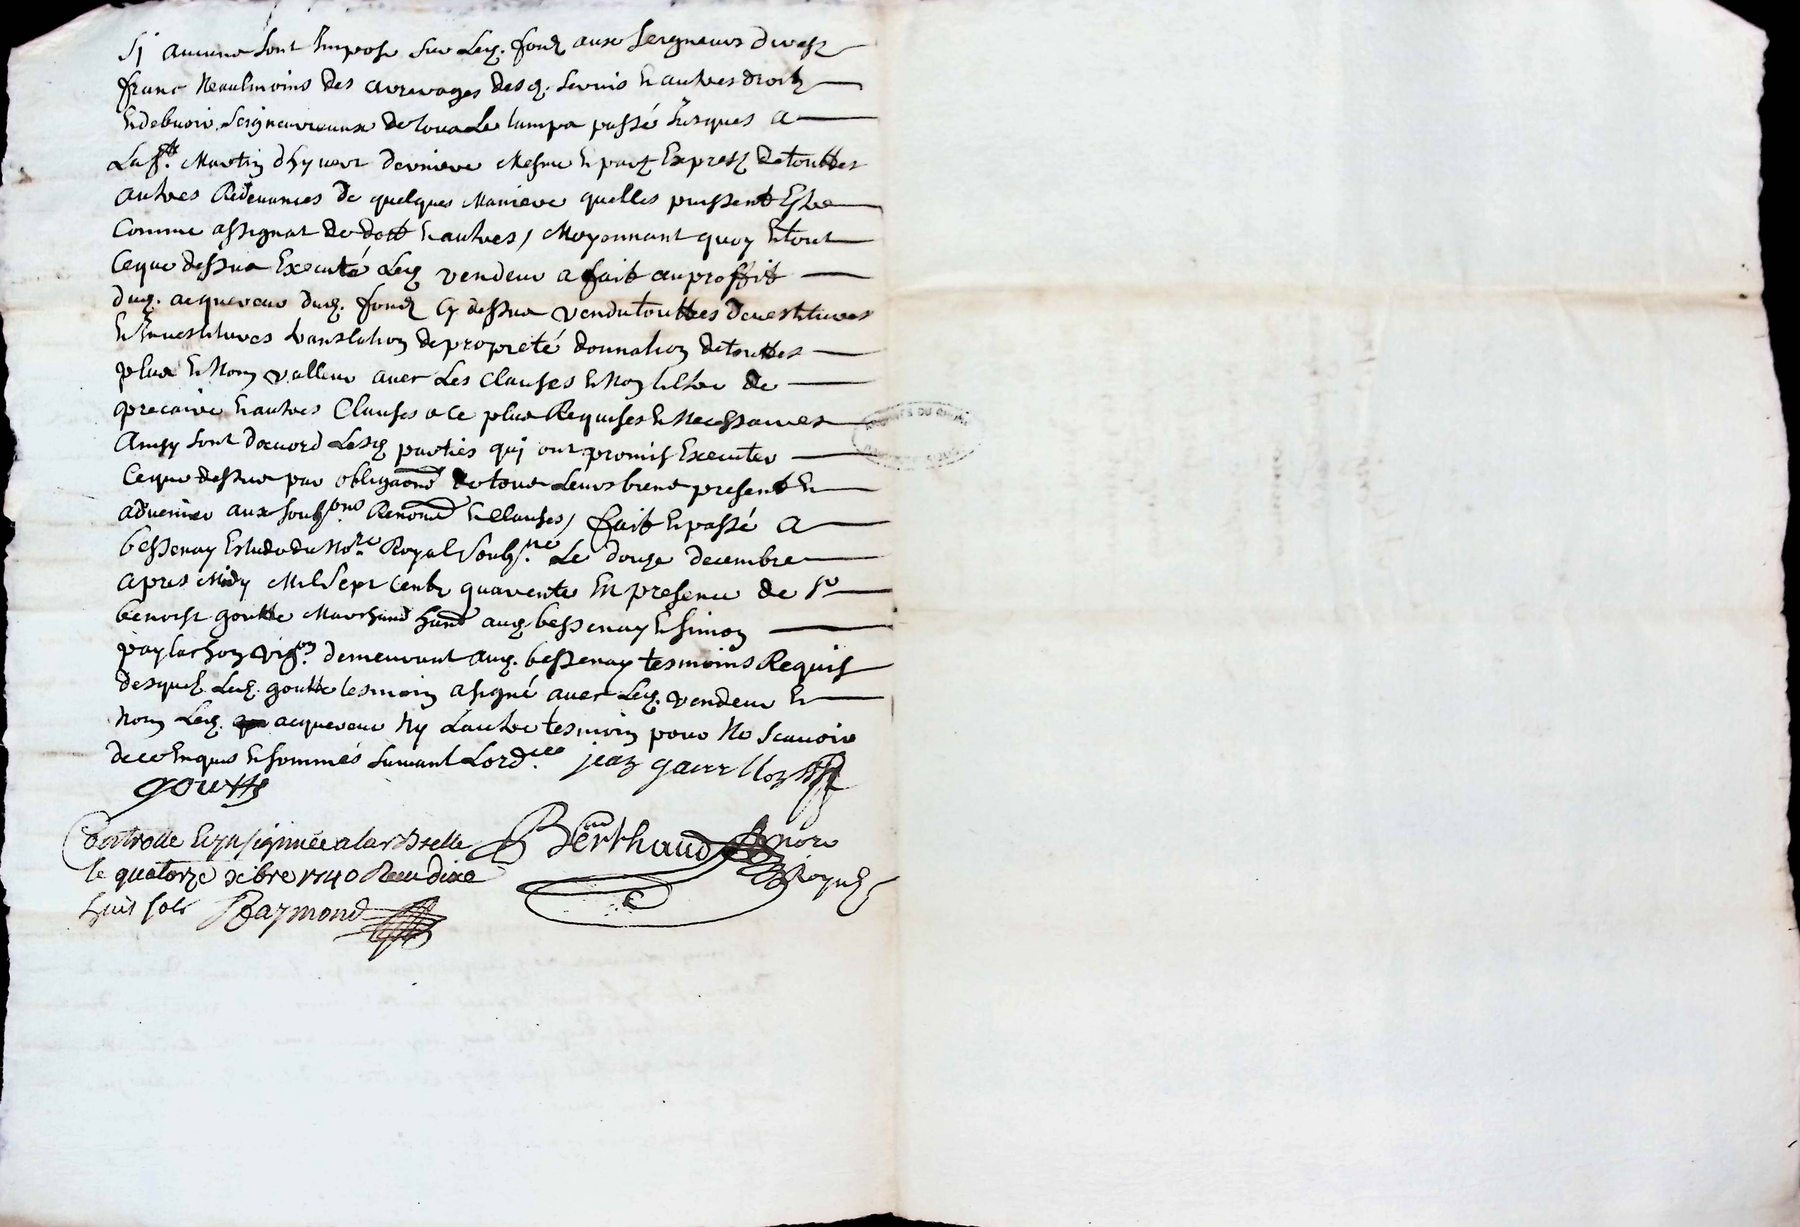 Sy aucune sont Impose sur Led. fond aux seigneurs diceux
franc Neaulmoins des arrerages desd. servis & autres droits
& debuoir seigneuriaux de tout Le temps passé Jusques a
La st. Martin dhyuert derniere Mesme & part Exprest de touttes
autres Redeuances de quelques Maniere quelles puissent Estre
Comme assignat de dott & autres / Moyennant quoy & tout
Ceque dessus Executé Led vendeur a fait au proffit
dud. acquereur dud. fond Cy dessus vendu touttes deuestitures
& Jnuestitures translation de proprieté donnation de touttes
plus & Moins valleur avec Les Clauses & Nom tiltre de
precaire & autres Clauses a ce plus Requises & Necessaires
Ainsy sont dacord Lesd parties quj ont promis Executer
Ceque dessus par obligaond de tous Leurs biens present &
aduenir aux soubons Renond & Clauses / fait & passé a
bessenay Estude du Nore Royal soubne. Le douze decembre
apres Midy Mil Sept Cents quarente En presence de sr
benoist goutte Marchand hand aud. bessenay & simon
paylachon vigon. demeurant aud. bessenay tesmoins Requis
desquel Led. goutte tesmoin a signé avec Led. vendeur &
Nom Led. acquereur Ny Lautre tesmoin pour Ne scauoir
de ce Enquis & sommés suiuant Lordce
goutte
Controlle & Jnsignuée a larbrelle
le quatorze xbre 1740 Receu dixe
huit sols Raymond
Berthaud nore
Royal